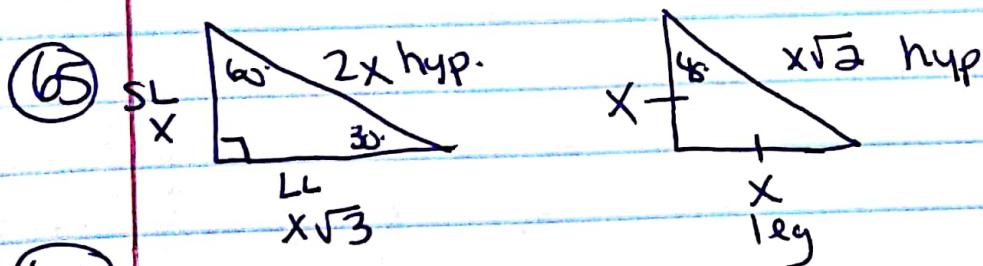 65
SL
X
60°
2x hyp.
30°
LL
X√3
X
45
x√2 hyp
X
leg